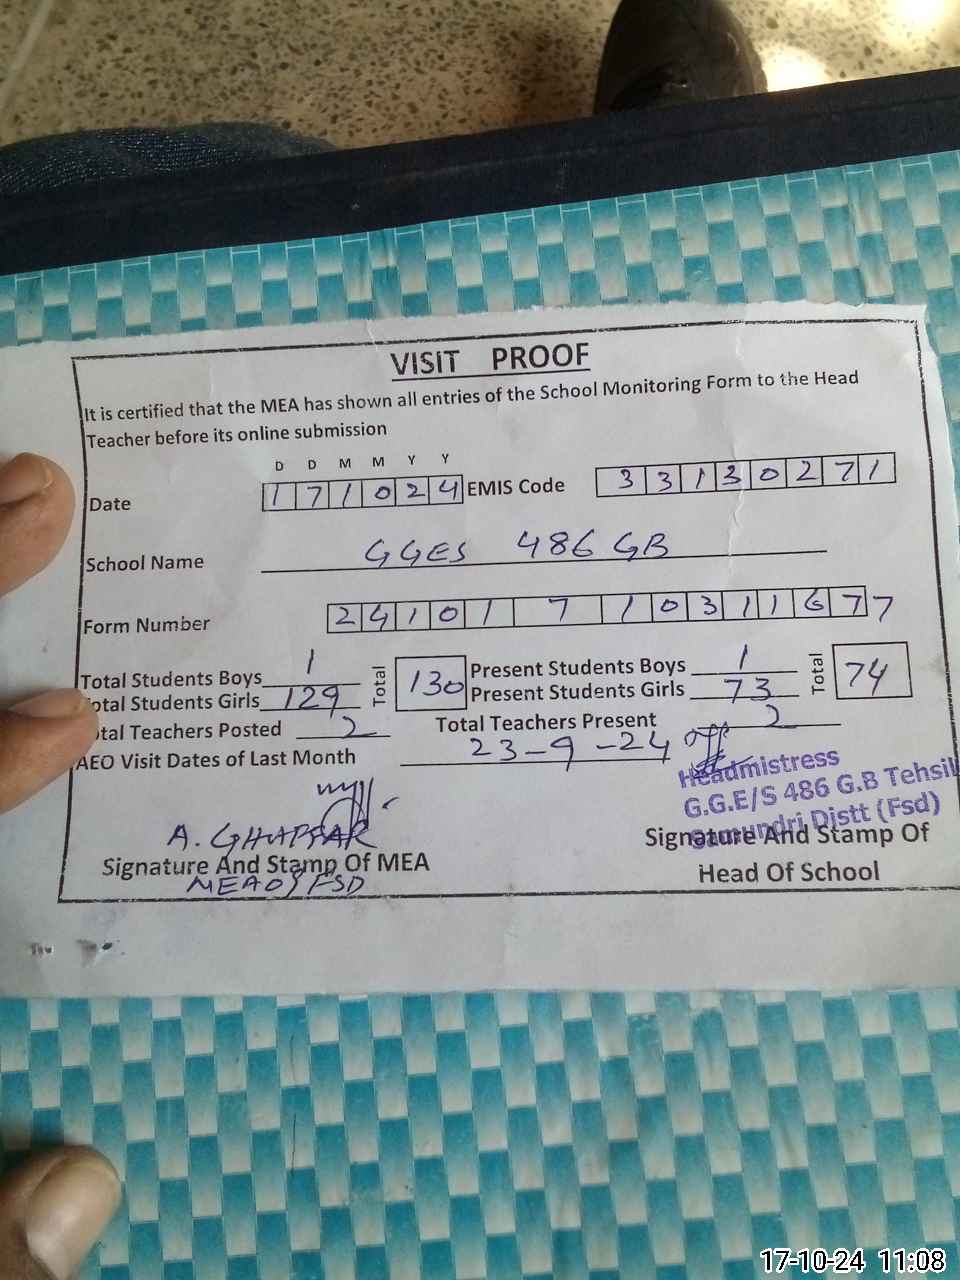 VISIT PROOF
It is certified that the MEA has shown all entries of the School Monitoring Form to the Head
Teacher before its online submission
D D M M Y Y
Date 1 7 1 0 2 4 EMIS Code 3 3 1 3 0 2 7 1
School Name GGES 486 GB
Form Number 2 4 1 0 1 7 1 0 3 1 1 6 7 7
Total Students Boys 1 Total 130 Present Students Boys 1 Total 74
otal Students Girls 129 Present Students Girls 73
tal Teachers Posted 2 Total Teachers Present 2
AEO Visit Dates of Last Month 23-9-24
Headmistress
G.G.E/S 486 G.B Tehsil
Samundri Distt (Fsd)
A. GHAFFAR
Signature And Stamp Of MEA
Signature And Stamp Of
Head Of School
FSD
17-10-24 11:08